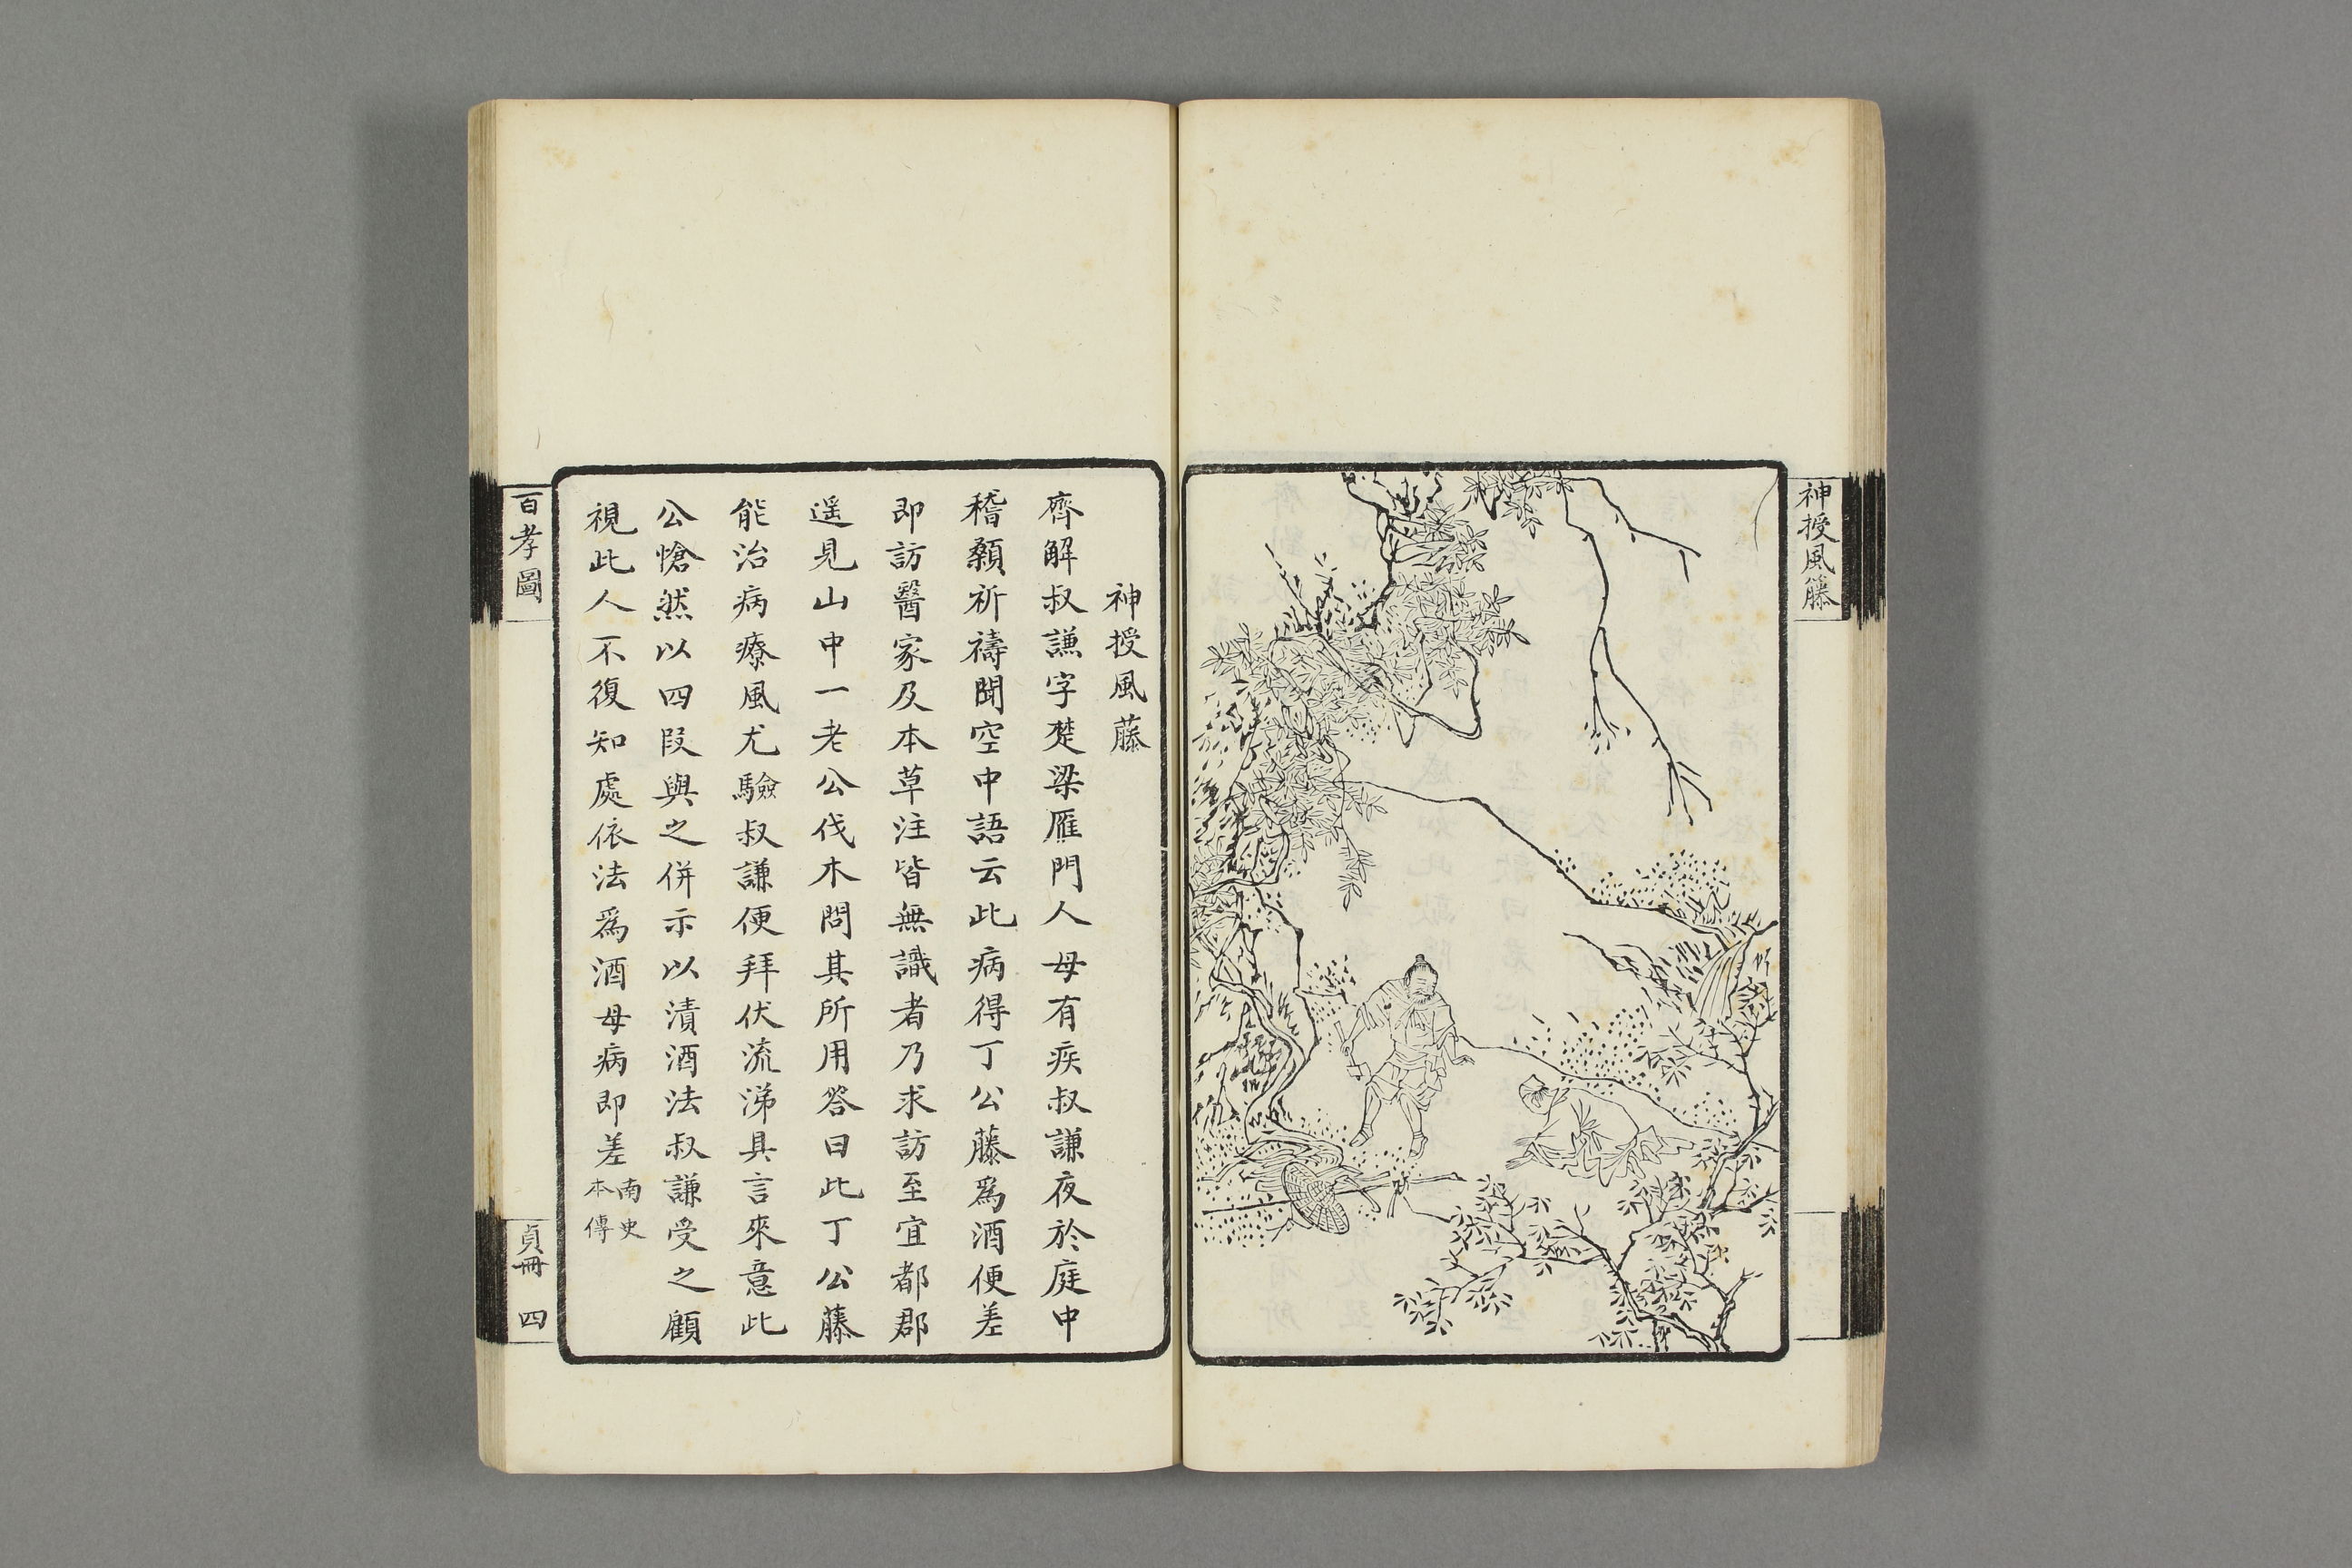 神授風籐
神授風藤
齊解叔謙字楚梁雁門人母有疾叔謙夜於庭中
稽顙祈禱聞空中語云此病得丁公藤爲酒便差
即訪醫家及本草注皆無識者乃求訪至宜都郡
遥見山中一老公伐木問其所用答曰此丁公藤
能治病療風尤驗叔謙便拜伏流涕具言來意此
公愴然以四段與之併示以漬酒法叔謙受之顧
視此人不復知處依法爲酒母病即差南史
本傳
百孝圖
貞冊 四